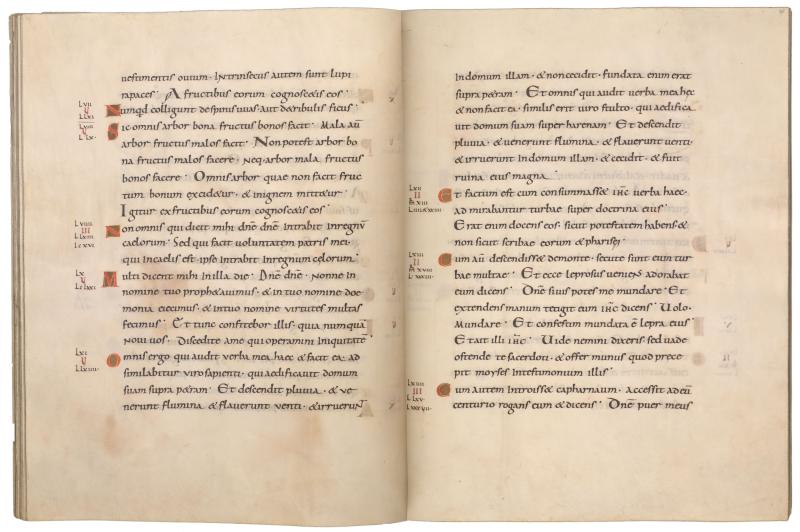 uestimentis ouium · Intrinsecus autem sunt lupi
rapaces · A fructibus eorum cognoscetis eos ·
LVII
V
LXXI
Numqd colligunt despinis uuas · aut detribulis ficus ·
LVIII
V
L LX ·
Sic omnis arbor bona fructus bonos facit · Mala aū
arbor fructus malos facit · Non potest arbor bo
na fructus malos facere · Neq · arbor mala fructus
bonos facere · Omnis arbor quae non facit fruc
tum bonum excidetur · & inignem mittetur ·
Igitur exfructibus eorum cognoscetis eos ·
LVIIII
III
Non omnis qui dicit mihi dn̄e dn̄e intrabit inregnū
caelorum · Sed qui facit uoluntatem patris mei ·
qui incaelis est · ipse intrabit inregnum celorum ·
LX
V
Multi dicent mihi in illa die · Dn̄e dn̄e · Nonne in
nomine tuo prophetauimus · & in tuo nomine doe
monia eiecimus · & intuo nomine uirtutes multas
fecimus · Et tunc confitebor illis · quia numquā
Noui uos · Discedite ame qui operamini iniquitatē
LXI
V
Omnis ergo qui audit uerba mea haec & facit ea · ad
similabitur uiro sapienti · qui aedificauit domum
suam supra petram · Et descendit pluuia · & ue
nerunt flumina & flauerunt uenti · & irruerunt
indomum illam · & noncecidit · fundata enim erat
supra petram · Et omnis qui audit uerba mea hec
& non facit ea · similis erit uiro stulto · qui aedifica
uit domum suam super harenam · Et descendit
pluuia · & uenerunt flumina · & flauerunt uenti ·
& irruerunt indomum illam · & cecidit · & fuit
ruina eius magna ·
LXII
II
Et factum est cum consummasset ihc uerba haec ·
admirabantur turbae super doctrina eius ·
Erat enim docens eos · sicut potestatem habens &
non sicut scribae eorum & pharisei ·
LXIII
II
Cum aū descendisset demonte · secutae sunt eum tur
bae multae · Et ecce leprosus ueniens adorabat
eum dicens · Dn̄e siuis potes me mundare · Et
extendens manum tetigit eum ihc dicens · Uolo ·
Mundare · Et confestim mundata ē lepra eius ·
Et ait illi ihc · Uide nemini dixeris sed uade
ostende te sacerdoti · & offer munus quod prece
pit moyses intestimonium illis ·
LXIIII
III
L LXV ·
Cum autem introisset capharnaum · Accessit adeū
centurio rogans eum & dicens · Dn̄e puer meus